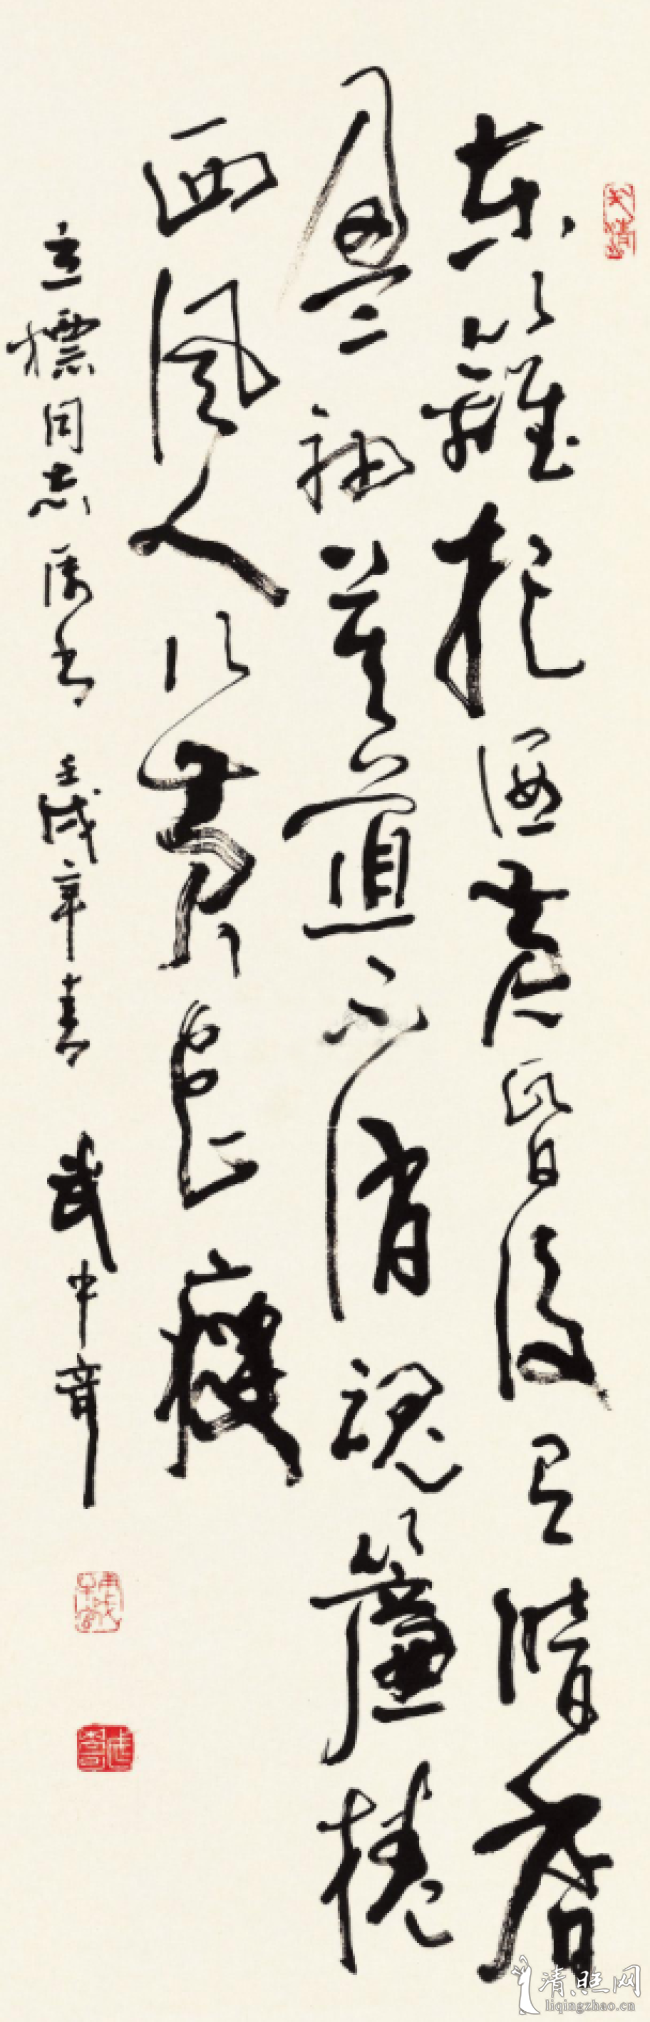 東籬把酒黄昏後有暗香
盈袖莫道不消魂簾捲
西風人比黄花瘦
立標同志属书 壬戌年春 武中奇
清旺网
liqingzhao.cn